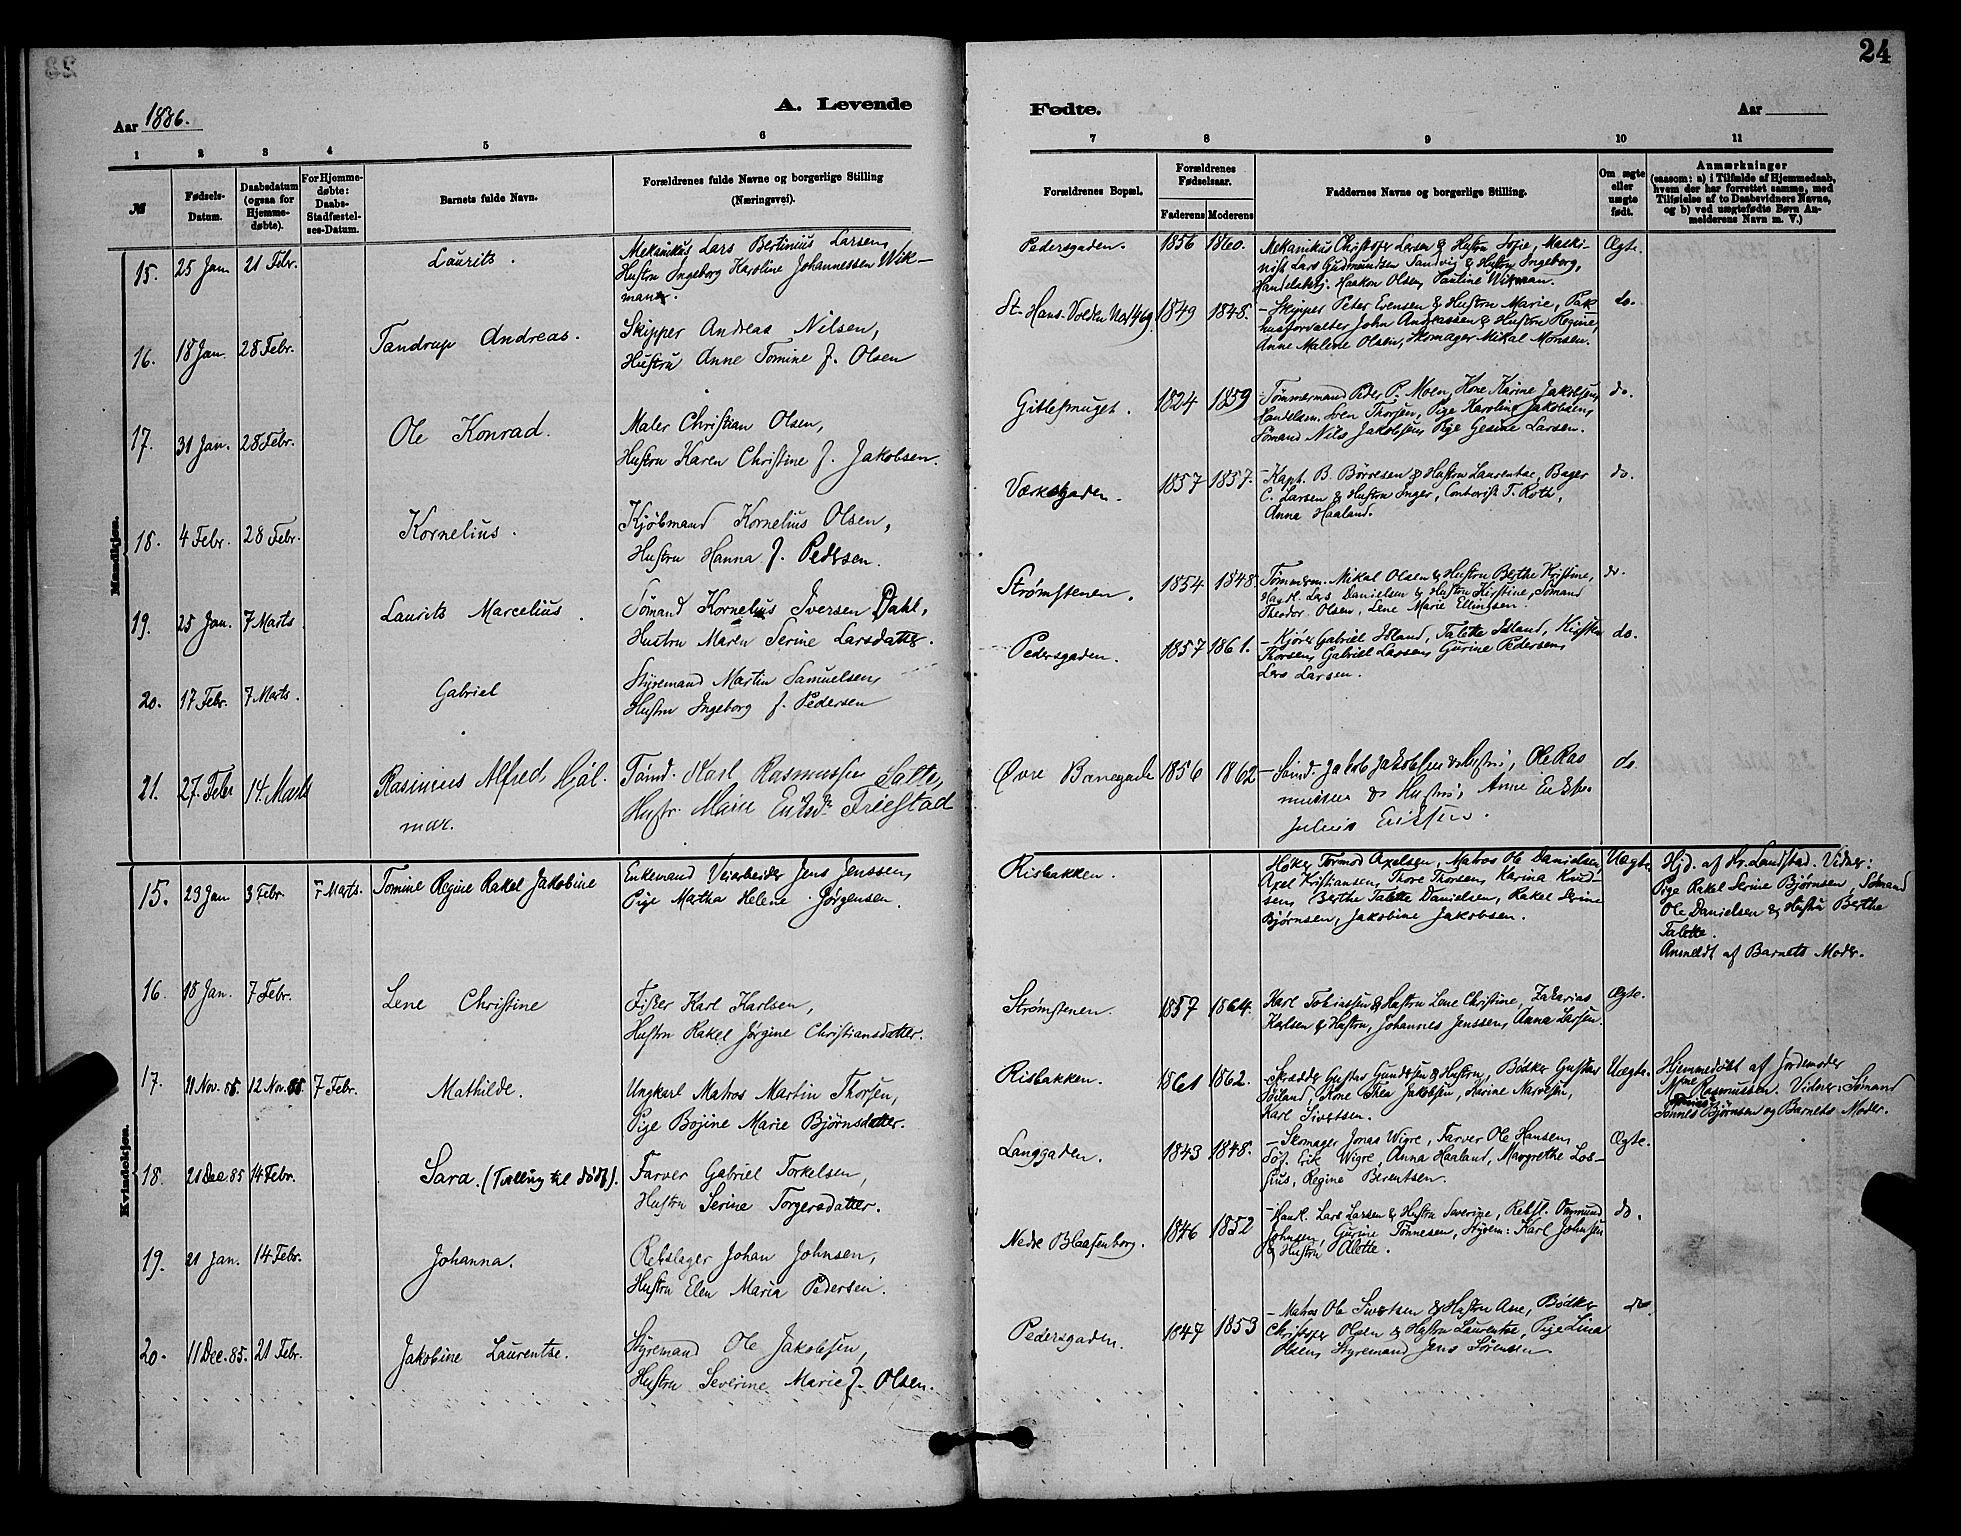 24
Aar 1886.
A. Levende
Fødte.
Aar
1 2 3 4 5 6
7 8 9 10 11
№
Fødsels-
Datum.
Daabsdatum
(ogsaa for
Hjemme-
døbte).
For Hjemme-
døbte:
Daabs-
Stadfæstel-
ses-Datum.
Barnets fulde Navn.
Forældrenes fulde Navne og borgerlige Stilling
(Næringsvei).
Forældrenes Bopæl.
Forældrenes
Fødselsaar.
Faderens Moderens
Faddernes Navne og borgerlige Stilling.
Om ægte
eller
uægte
født.
Anmærkninger
(saasom: a) i Tilfælde af Hjemmedaab,
hvem der har forrettet samme, med
Tilføielse af to Daabsvidners Navne,
og b) ved uægtefødte Børn An-
melderens Navn m. m. V.)
Mandkjøn.
15. 25 Jan. 21 Febr. Laurits.
Mekanikus Lars Bertinius Larsen,
Hustru Ingeborg Karoline Johannessen Wik-
man.
Pedersgaden. 1856 1860.
Mekanikus Christoffer Larsen & Hustru Sofie, Maski-
nist Lars Gudmundsen Sandvig & Hustru Ingeborg,
Handelsbetj. Haakon Olsen, Pauline Wikman.
Ægte.
16. 18 Jan. 28 Febr. Tandrup Andreas.
Skipper Andreas Nilsen,
Hustru Anne Tomine f. Olsen
St. Hans Volden No 1469. 1849 1848.
- Skipper Peter Evensen & Hustru Marie, Pak
husforvalter John Andreassen & Hustru Regine,
Anne Malene Olsen, Skomager Mikal Monsen.
do.
17. 31 Jan. 28 Febr. Ole Konrad.
Maler Christian Olsen,
Hustru Karen Christine f. Jakobsen.
Gitlesmuget. 1824 1859
- Tømmermand Peder P. Moen, Kone Karine Jakobsen,
Handelsm. Sven Thorsen, Pige Karoline Jakobsen,
Sømand Nils Jakobsen, Pige Gesine Larsen.
do.
18. 4 Febr. 28 Febr. Kornelius.
Kjøbmand Kornelius Olsen,
Hustru Hanna f. Pedersen.
Værksgaden. 1857 1857.
- Kapt. B. Børresen & Hustru Laurentze, Bager
C. Larsen & Hustru Inger, Contorist T. Roth,
Anna Haaland.
do.
19. 25 Jan. 7 Marts Laurits Marcelius.
Sømand Kornelius Iversen Dahl,
Hustru Maren Serine Larsdatter.
Strømstenen. 1854 1848
Tømmerm. Mikal Olsen & Hustru Berthe Kristine,
Handl. Lars Danielsen & Hustru Kirstine, Sømand
Theodor Olsen, Lene Marie Ellingsen.
do.
20. 17 Febr. 7 Marts. Gabriel
Styremand Martin Samuelsen,
Hustru Ingeborg f. Pedersen
Pedersgaden. 1857 1861.
- Kjører Gabriel Idland, Talette Idland, Kirsten
Thorsen, Gabriel Larsen, Gurine Pedersen,
Lars Larsen.
do.
21. 27. Febr 14. Marts Rasinius Alfred Hjal-
mar.
Tømd. Karl Rasmussen Salte,
Hustr. Marie Eriksdr Friestad
Øvre Banegade 1856 1862
- Sømd. Jakob Jakobsen & Hustru, Ole Ras
mussen & Hustru, Anne
Julius Eriksen.
do.
Kvindekjøn.
15. 23 Jan 3 Febr. 7 Marts. Tomine Regine Rakel Jakobine
Enkemand Veiarbeider Jens Jenssen,
Pige Martha Helene Jørgensen.
Risbakken.
Høker Tormod Axelsen, Matros Ole Danielsen,
Axel Kristiansen, Thore Thorsen, Karina Knud-
sen, Berthe Talette Danielsen, Rakel Serine
Bjørnsen, Jakobine Jakobsen.
Uægte.
Hjd. af Hr. Landstad. Vidner:
Pige Rakel Serine Bjørnsen, Sømand
Ole Danielsen & Hustru Berthe
Talette.
Anmeldt af Barnets Moder.
16. 18 Jan. 7 Febr. Lene Christine
Fisker Karl Karlsen,
Hustru Rakel Jørgine Christiansdatter.
Strømstenen. 1857 1864.
Karl Tobiassen & Hustru Lene Christine, Zakarias
Karlsen & Hustru, Johannes Jenssen, Anna Larsen.
Ægte.
17. 11 Nov. 85. 12 Nov. 85 7 Febr. Mathilde.
Ungkarl Matros Martin Thorsen,
Pige Bojine Marie Bjørnsdatter.
Risbakken. 1861 1862.
- Skrædder Gustav Gundersen & Hustru, Bødker Gustav
Søiland, Kone Thea Jakobsen, Karine Narvesen,
Karl Sivertsen.
Uægte.
Hjemmedøbt af Jordemoder
Mme Rasmussen. Vidner: Sømand
Tønnes Bjørnsen og Barnets Moder.
18. 21 Dec. 85 14 Febr. Sara. (Tvilling til dødf).
Farver Gabriel Torkelsen,
Hustru Serine Torgersdatter.
Langgaden. 1843 1848.
- Skomager Jonas Wigre, Farver Ole Hansen,
Søf. Erik Wigre, Anna Haaland, Margrethe Los-
sius, Regine Berentsen.
Ægte.
19. 21 Jan. 14 Febr. Johanna.
Rebslager Johan Johnsen,
Hustru Elen Maria Pedersen.
Nedre Blaasenborg. 1846 1852
- Handl. Lars Larsen & Hustru Severine, Rebsl. Osmund
Johnsen, Gurine Tønnesen, Styrem: Karl Johnsen
& Hustru Alette.
do.
20. 11 Dec. 85. 21 Febr. Jakobine Laurentze.
Styremand Ole Jakobsen,
Hustru Severine Marie f. Olsen.
Pedersgaden. 1847 1853
- Matros Ole Sivertsen & Hustru Ane, Bødker
Christoffer Olsen & Hustru Laurentze, Pige Lina
Olsen, Styremand Jens Sørensen.
do.